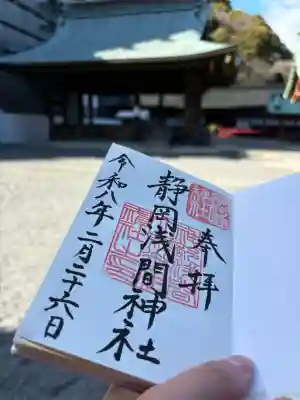 奉拝
静岡浅間神社
令和八年二月二十六日